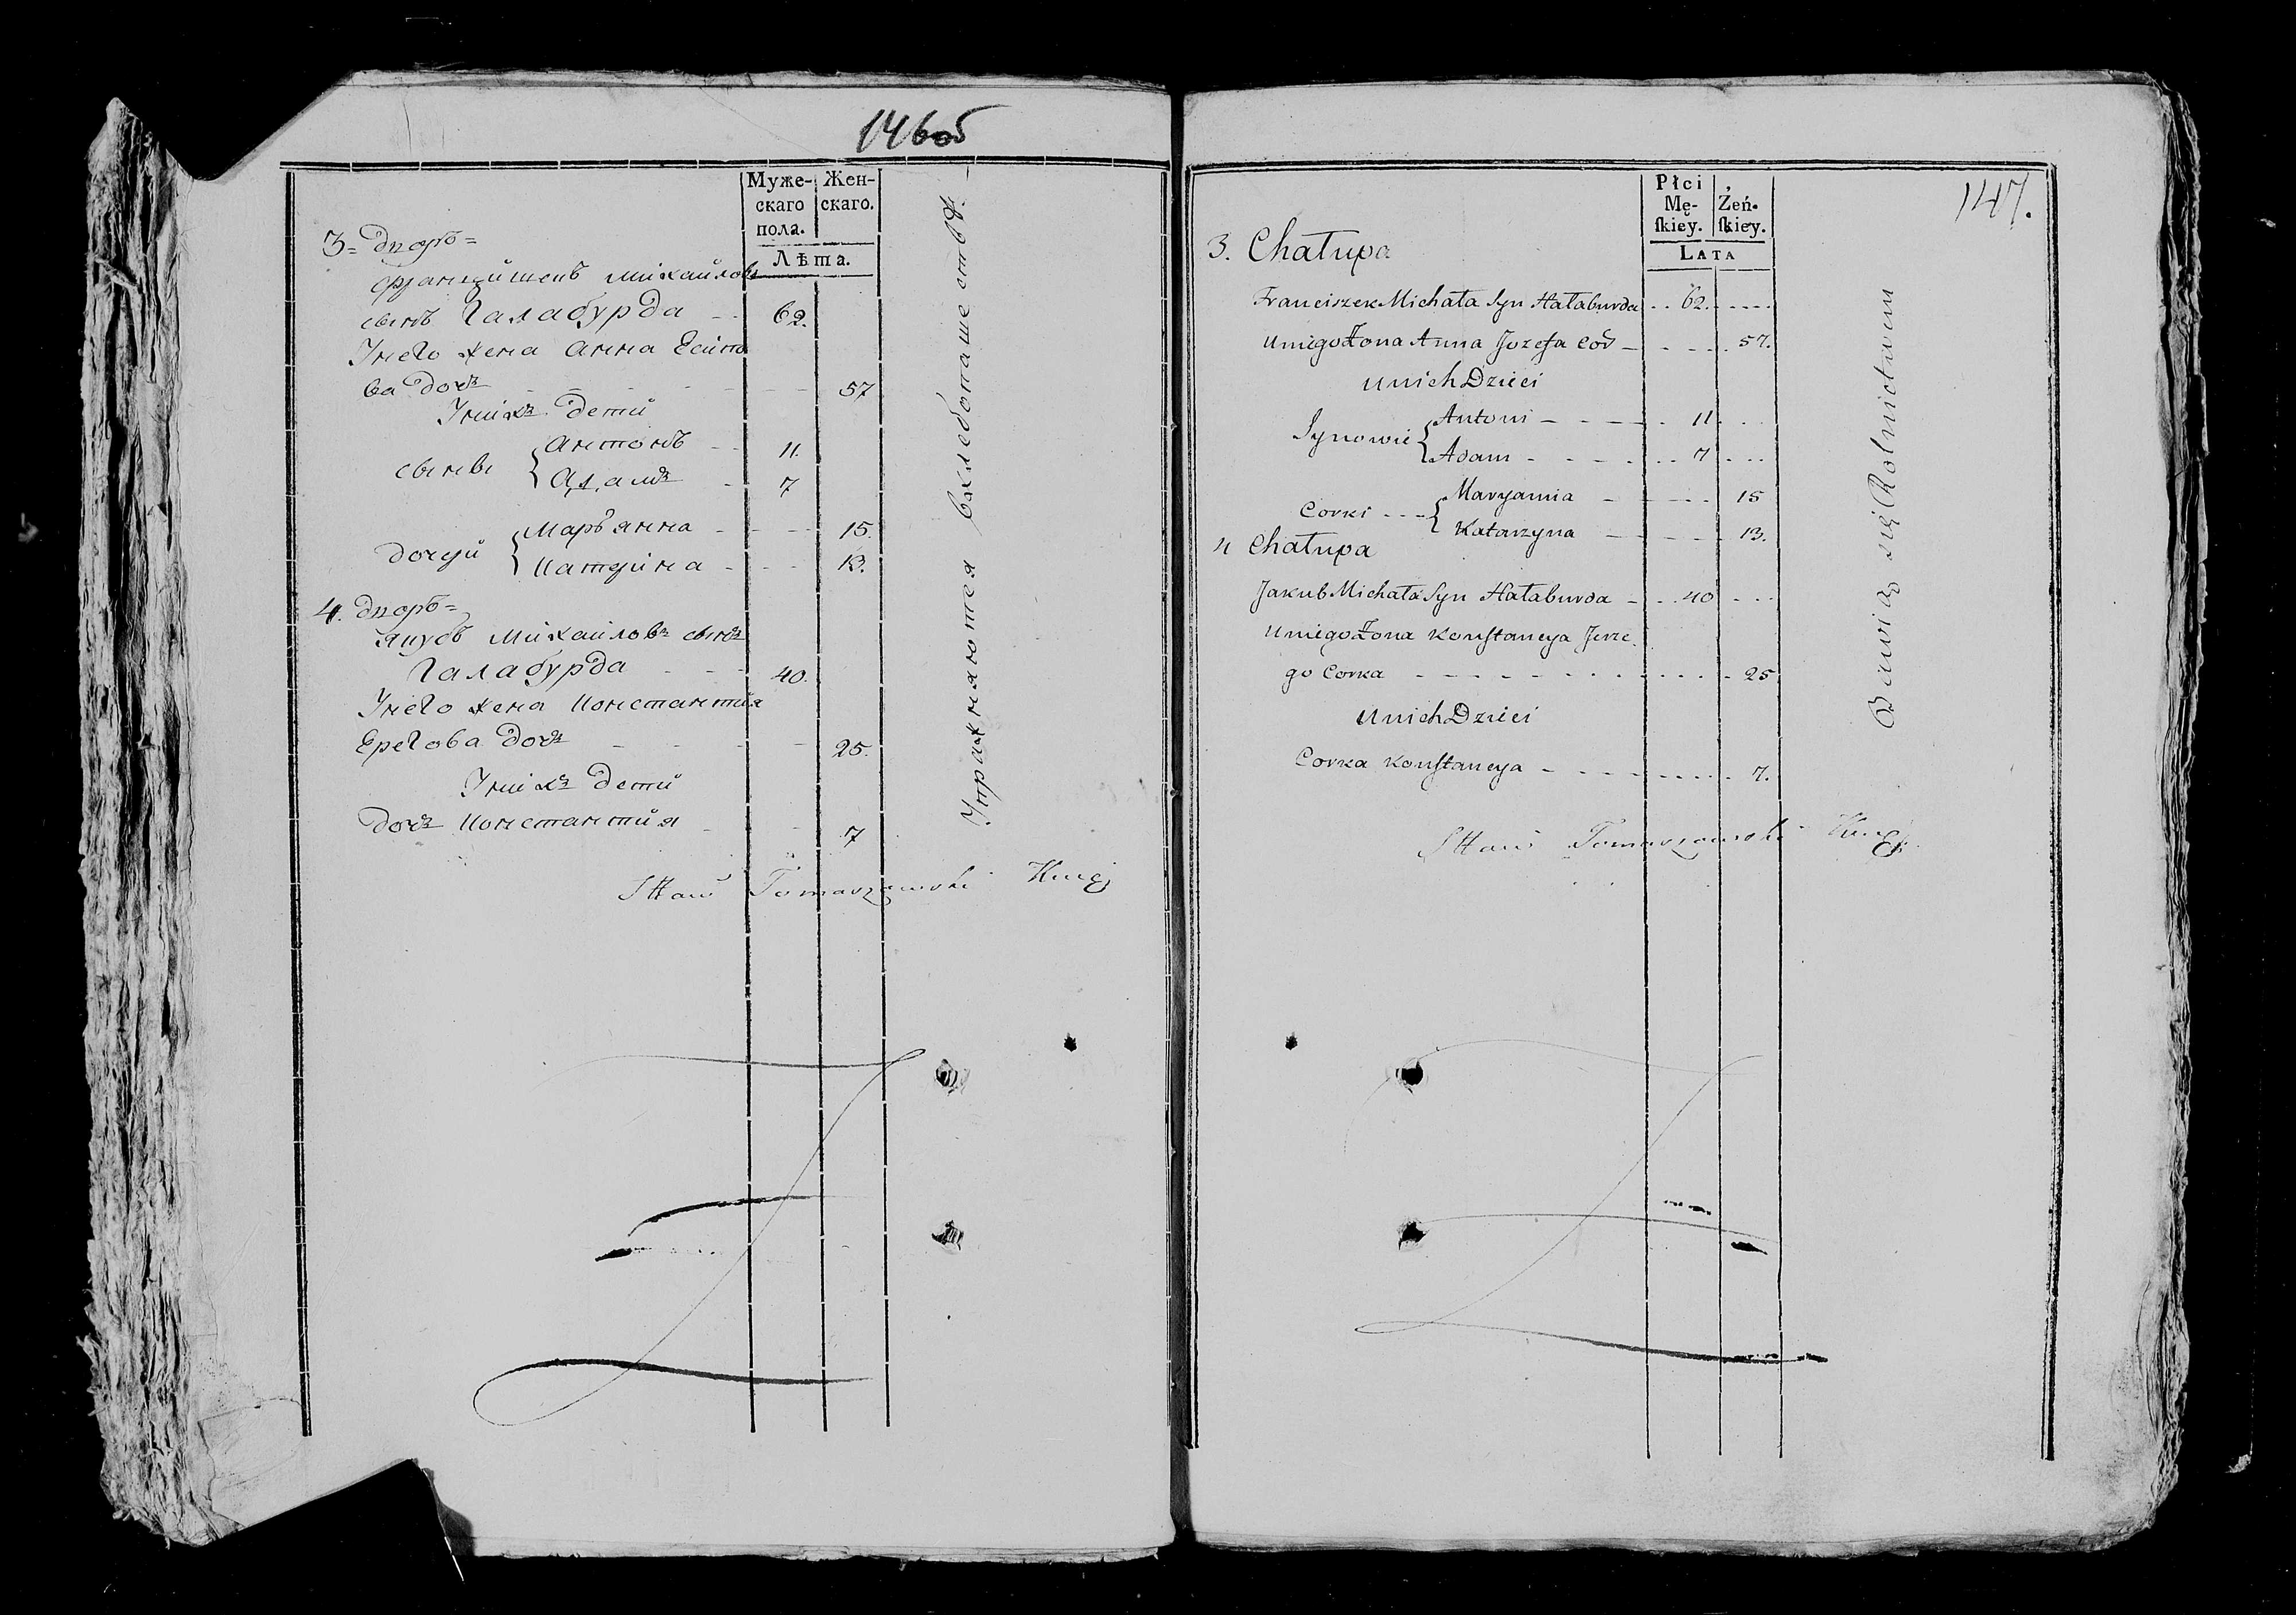 146об
Муже-
скаго
пола.
Жен-
скаго.
Лѣта.
3= Дворъ=
Францишекъ Михайловъ
сынъ Галабурда - - 62.
Унего жена Анна Есифо
ва дочь - - - - - 57
Унихъ дети
сыны { Антонъ - - 11.
Адамъ - 7
дочери { Маръянна - - - - 15.
Катерина - - - - 13.
4. Дворъ=
Якубъ Михаиловъ сынъ
Галабурда - - - 40.
Унего жена Константия
Ерегова дочь - - - - 25.
Унихъ дети
дочь Константия - - - 7
Упражняются вхлебопашестве.
Tomaszewski
147.
Płci
Mę-
ſkiey.
Żeń-
ſkiey.
LATA
3. Chałupa
Franciszek Michała Syn Hałaburda . . 62. - - - -
Uniego Żona Anna Jozefa Cor - - - - - 57.
Unich Dzieci
Synowie { Antoni - - - - - . 11 . . .
Adam - - - - - . . 7 . . .
Corki - - - { Maryanna - - - - - 15
Katarzyna - - - - - 13.
4 Chałupa
Jakub Michała Syn Hałaburda - . . 40 - - -
Uniego Żona Konſtancya Jerze
go Corka - - - - - - - - - - - 25
Unich Dzieci
Corka Konſtancya - - - - - - - 7.
Bawią się Rolnictwem
Tomaszewski